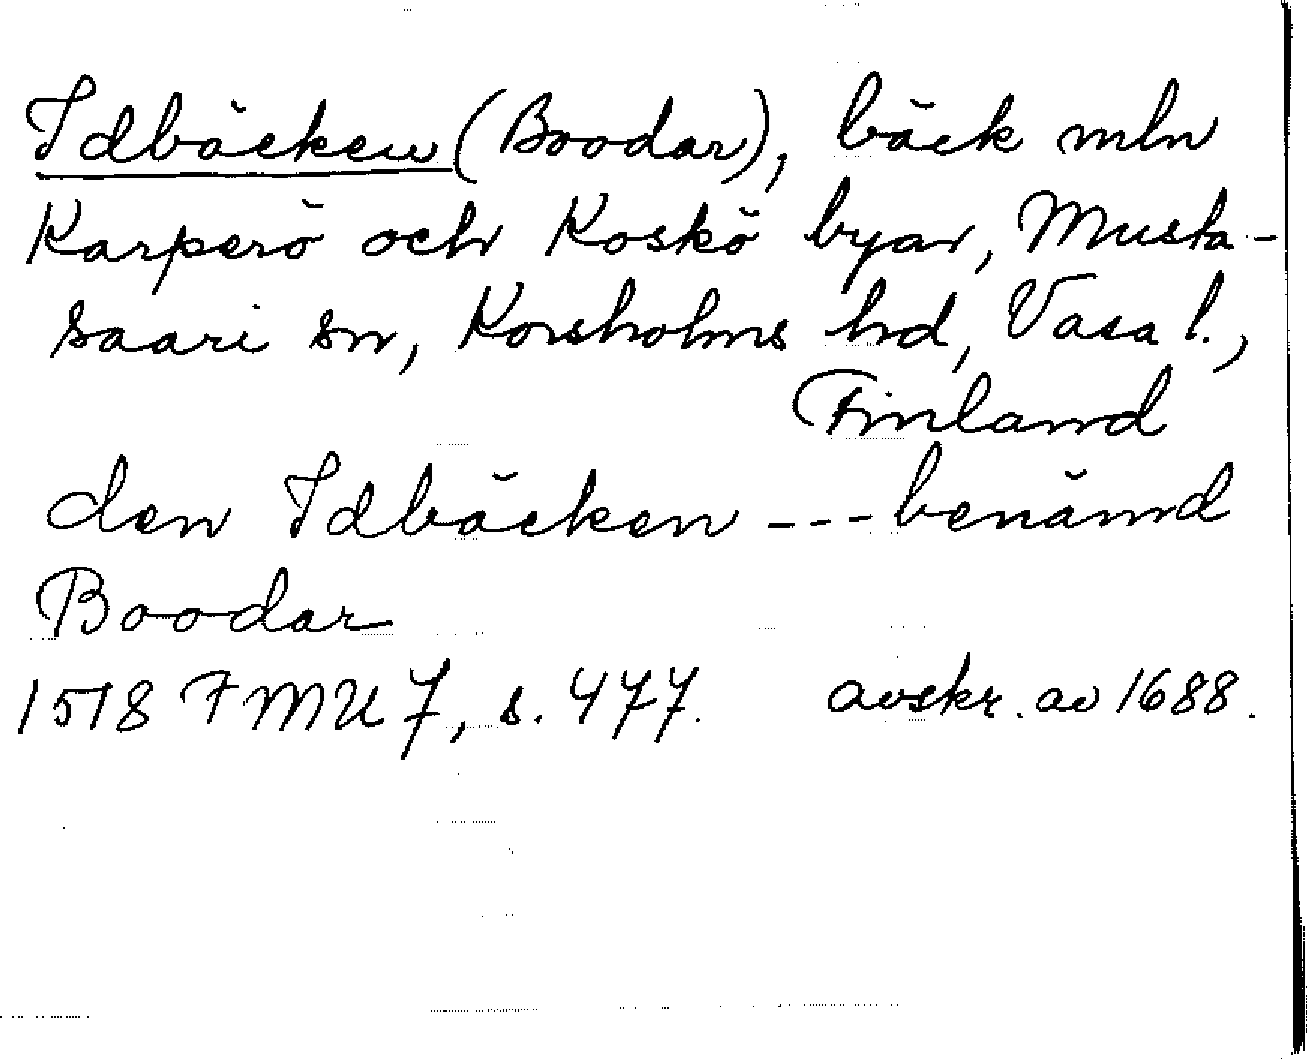 Idbäcken (Boodar), bäck mln
Karperö och Koskö byar, Musta-
saari sn, Korsholms hd, Vasa l.,
Finland
den Idbäcken --- benämd
Boodar
1518 FMU 7, s. 477. avskr. av 1688.